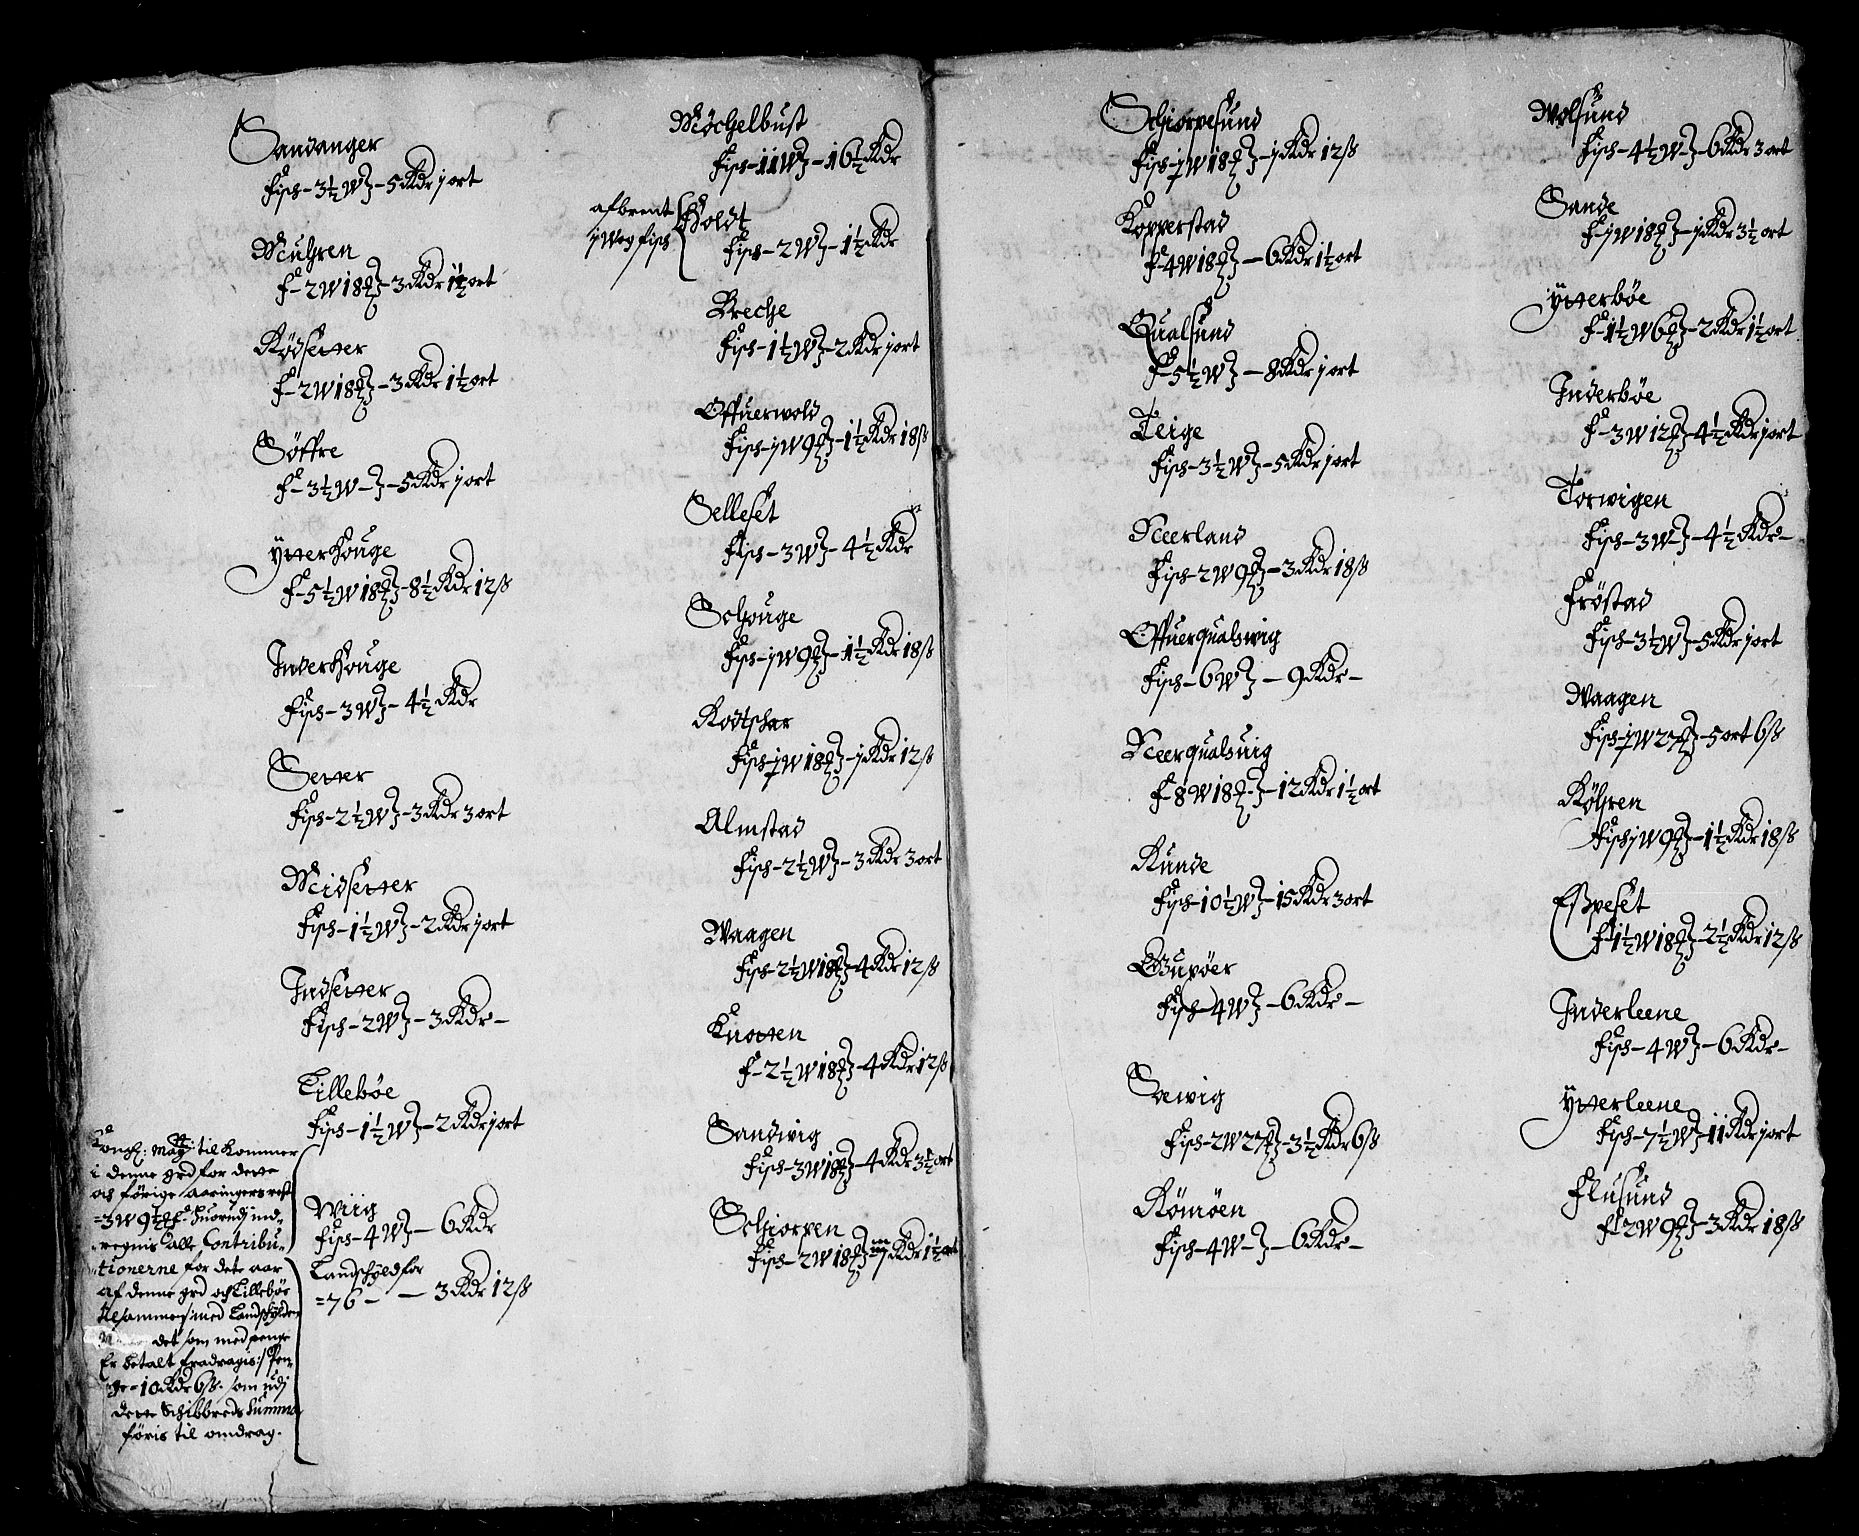 Sandanger
Fisch - 3½ W - 5 Rdr j ort
Mulhren
F - 2 W 18 - 3 Rdr 1½ ort
Rödsetter
F - 2 W 18 - 3 Rdr 1½ ort
Söffre
F - 3½ W - 5 Rdr j ort
Ytterhouge
F - 5½ W 18 - 8½ Rdr 12 ß
Inderhouge
Fisch - 3 W - 4½ Rdr
Setter
Fisch - 2½ W - 3 Rdr 3 ort
Midsetter
Fisch - 1½ W - 2 Rdr j ort
Indsetter
Fisch - 2 W - 3 Rdr -
Lilleböe
Fisch - 1½ W - 2 Rdr j ort
Kongl: May: til kommer
i denne grd for dette
och förige aaringers rest
=3 W 9 huorudj ind=
=regnis alle Contribu=
=tionerne for dete aar
af denne grd och Lillebör
tilsammen med Landschylden
det som med penge
Er betalt fradragis:/ Pen=
ge = 10 Rdr 6 ß. som udj
dette Schibbreds Summa
föris til omdrag.
Wiig
Fisch - 4 W - 6 Rdr
Landschyld for
=76 - - 3 Rdr 12 ß
Möchelbust
Fisch - 11 W - 16½ Rdr
afbrent
j Wog fisch
Holdt
Fisch - 2 W - 1½ Rdr
Breche
Fisch - 1½ W - 2 Rdr j ort
Offuerwold
Fisch - j W 9 - 1½ Rdr 18 ß
Selleset
Fisch - 3 W - 4½ Rdr
Schouge
Fisch - j W 9 - 1½ Rdr 18 ß
Rodtschar
Fisch - j W 18 - j Rdr 12 ß
Almstad
Fisch - 2½ W - 3 Rdr 3 ort
Waagen
Fisch - 2½ W 18 - 4 Rdr 12 ß
Knotten
F - 2½ W 18 - 4 Rdr 12 ß
Sandwig
Fisch - 3 W 18 - 4 Rdr 3½ ort
Schiorpen
Fisch - 2 W 18 Rdr 1½ ort
Schiorpesund
Fisch - j W 18 - j Rdr 12 ß
Kopperstad
F - 4 W 18 - 6 Rdr 1½ ort
Qualsund
F - 5½ W - 8 Rdr j ort
Teige
Fisch - 3½ W - 5 Rdr j ort
Neerland
Fisch - 2 W 9 - 3 Rdr 18 ß
Offuerqualswig
Fisch - 6 W - 9 Rdr -
Neerqualsuig
F - 8 W 18 - 12 Rdr 1½ ort
Runde
Fisch - 10½ W - 15 Rdr 3 ort
Guxöer
Fisch - 4 W - 6 Rdr -
Sæwig
Fisch - 2 W 27 - 3½ Rdr 6 ß
Römöen
Fisch - 4 W - 6 Rdr -
Wolsund
Fisch - 4½ W - 6 Rdr 3 ort
Sande
F - j W 18 - j Rdr 3½ ort
Ytterböe
F - 1½ W 6 - 2 Rdr 1½ ort
Inderböe
F - 3 W 12 - 4½ Rdr j ort
Torwigen
Fisch - 3 W - 4½ Rdr -
Fröstad
Fisch - 3½ W - 5 Rdr j ort
Waagen
Fisch - j W 27 - 5 ort 6 ß
Kölhren
Fisch j W 9 - 1½ Rdr 18 ß
Eßpeset
F 1½ W 18 - 2½ Rdr 12 ß
Inderleene
Fisch - 4 W - 6 Rdr -
Ytterleene
Fisch - 7½ W - 11 Rdr j ort
Flusund
F 2 W 9 - 3 Rdr 18 ß